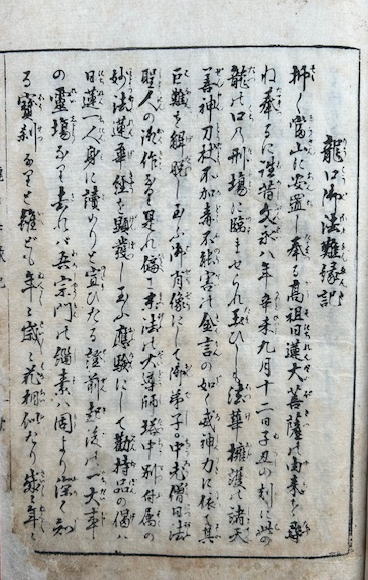 龍口御法難縁記
抑〻當山に安置し奉る高祖日蓮大菩薩の由来を尋
ね奉るに往昔文永八年辛未九月十二日子丑の刻に此の
龍の口乃刑場に臨ませられ玉ひしも法華擁護の諸天
善神刀杖不加毒不能害の金言の如く威神力に依て其
巨難を解脱し玉ふ御肖像にして御弟子の中老僧日法
聖人の御作なり是れ偏に末法の大導師格中別付属の
妙法蓮華経を顕發し玉ふ應験にして勧持品の偈は
日蓮一人身に讀めりと宣ひたる證前起後の一大事
の靈場なり去れバ吾宗門の緇素は固より深く知
る寳刹なりと雖ども年〻歳〻花相似たり歳〻年〻